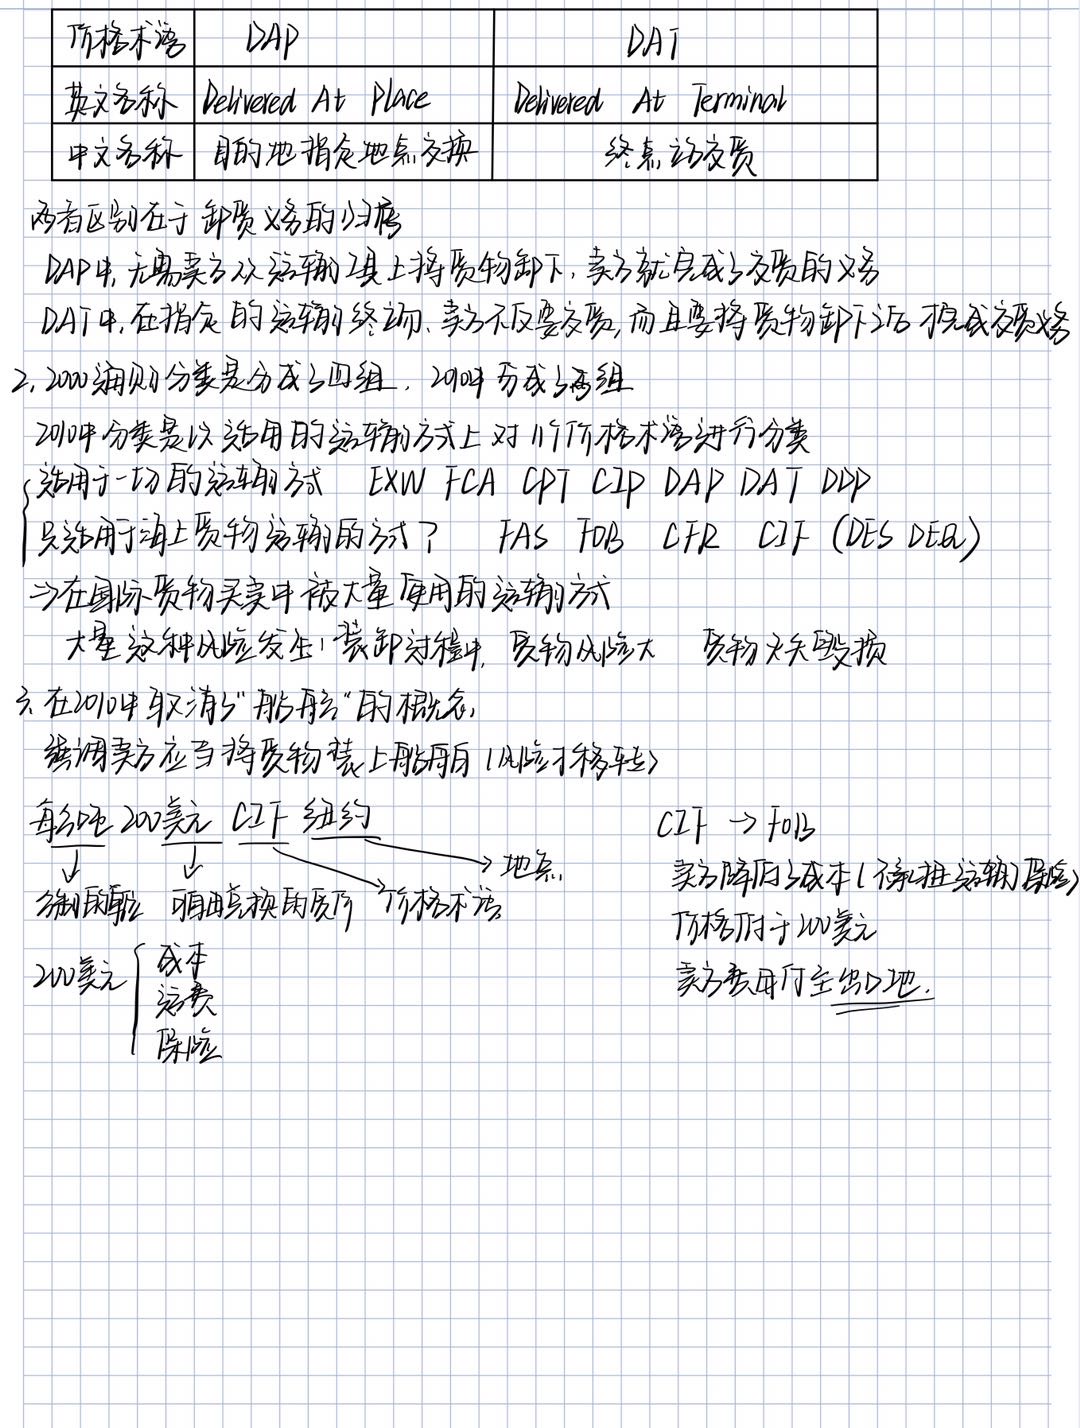 价格术语 DAP DAT
英文名称 Delivered At Place Delivered At Terminal
中文名称 目的地指定地点交换 终点站交货
两者区别在于卸货义务的归属
DAP中,无需卖方从运输工具上将货物卸下,卖方就完成了交货的义务
DAT中,在指定的运输的终端,卖方不仅要交货,而且要将货物卸下之后才完成交货义务
2,2000通则分类是分成了四组,2010中分成了两组
2010中分类是以适用的运输的方式上对11个价格术语进行分类
适用于一切的运输方式 EXW FCA CPT CIP DAP DAT DDP
只适用于海上货物运输的方式? FAS FOB CFR CIF (DES DEQ)
⇒在国际货物买卖中被大量使用的运输方式
大量这种风险发生,装卸过程中,货物风险大 货物灭失毁损
3.在2010中取消了"船舷"的概念,
强调卖方应当将货物装上船后(风险才移转)
每公吨 200美元 CIF 纽约
CIF → FOB
地点
卖方降低了成本(承担运输、保险)
价格术语
价格 于200美元
200美元
卖方费用付至出口地.
成本
运费
保险